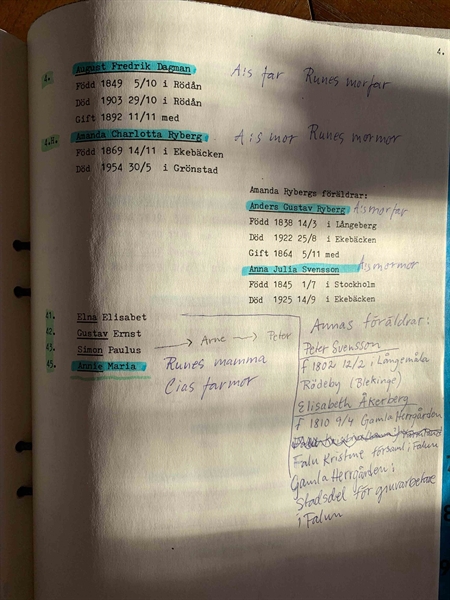 4.
4. August Fredrik Dagman A:s far Runes morfar
Född 1849 5/10 i Rödån
Död 1903 29/10 i Rödån
Gift 1892 11/11 med
4.H. Amanda Charlotta Ryberg A:s mor Runes mormor
Född 1869 14/11 i Ekebäcken
Död 1954 30/5 i Grönstad
Amanda Rybergs föräldrar:
Anders Gustav Ryberg A:s morfar
Född 1838 14/3 i Långeberg
Död 1922 25/8 i Ekebäcken
Gift 1864 5/11 med
Anna Julia Svensson A:s mormor
Född 1845 1/7 i Stockholm
Död 1925 14/9 i Ekebäcken
41. Elna Elisabet
42. Gustav Ernst
43. Simon Paulus → Arne → Peter
45. Annie Maria Runes mamma
Cias farmor
Annas föräldrar:
Peter Svensson
f 1802 12/2 i Långemåla
Rödeby (Blekinge)
Elisabeth Åkerberg
f 1810 9/4 Gamla Herrgården
Falu Kristine församl i Falun
Gamla Herrgården:
Stadsdel för gruvarbetare
i Falun